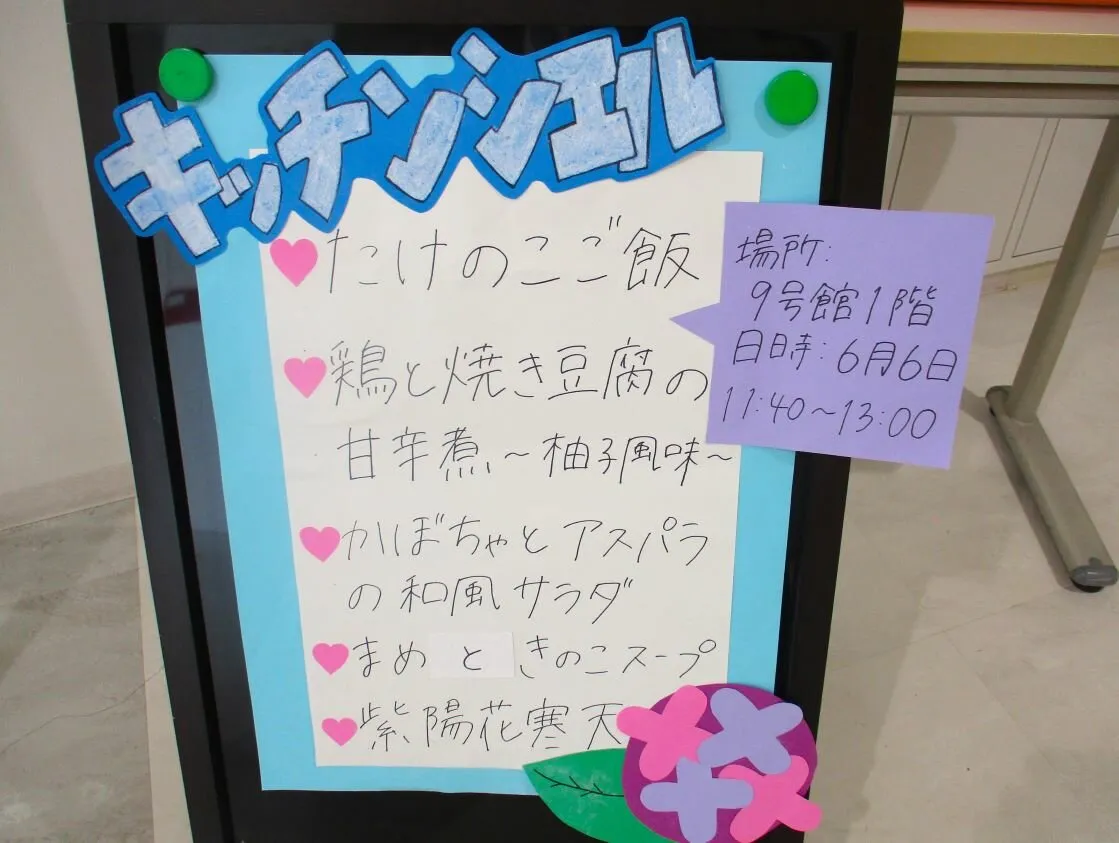 キッチンシエル
たけのこご飯
鶏と焼き豆腐の
甘辛煮～柚子風味～
かぼちゃとアスパラ
の和風サラダ
まめときのこスープ
紫陽花寒天
場所:
9号館1階
日時:6月6日
11:40～13:00